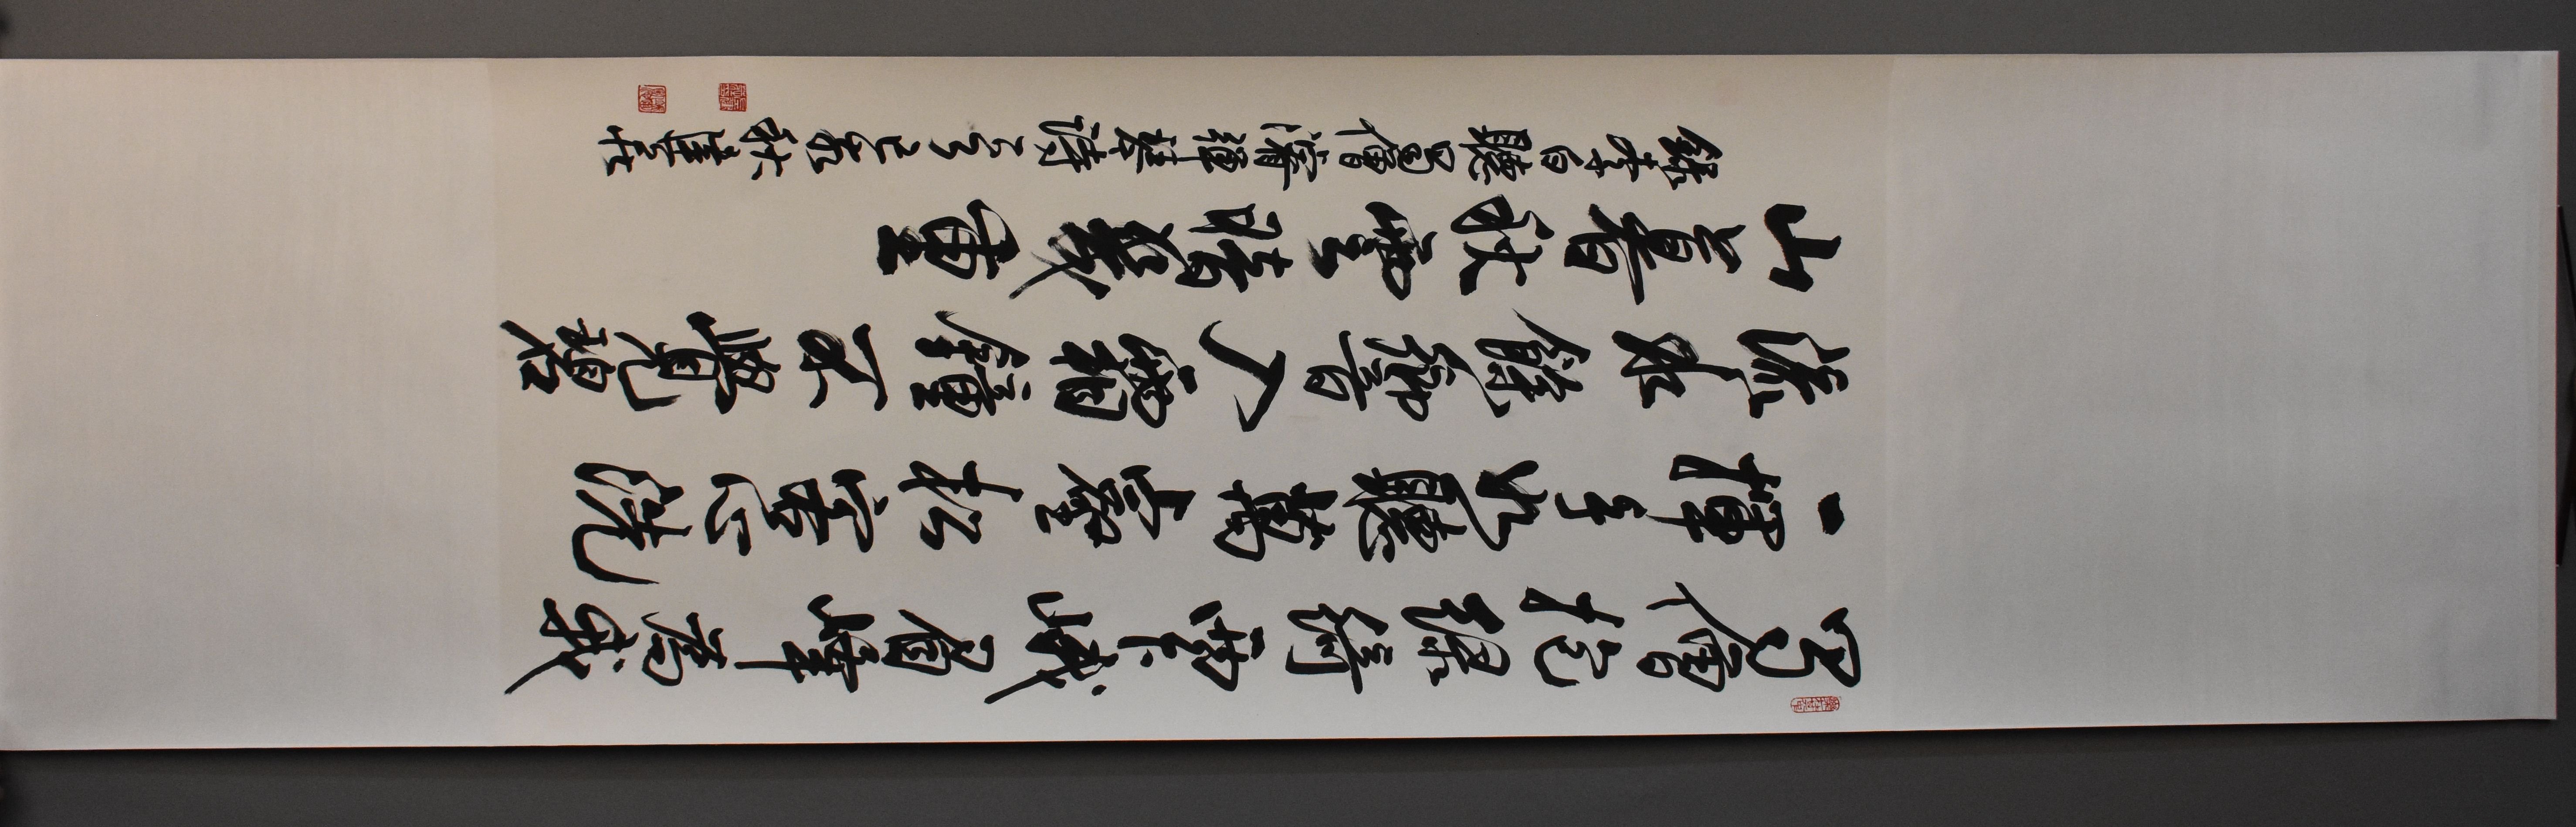 蜀僧抱綠綺西下峨眉峰為我
一揮手如聽萬壑松客心洗
流水餘響入霜鐘不覺碧
山暮秋雲暗幾重
錄李白聽蜀僧濬彈琴詩 秋